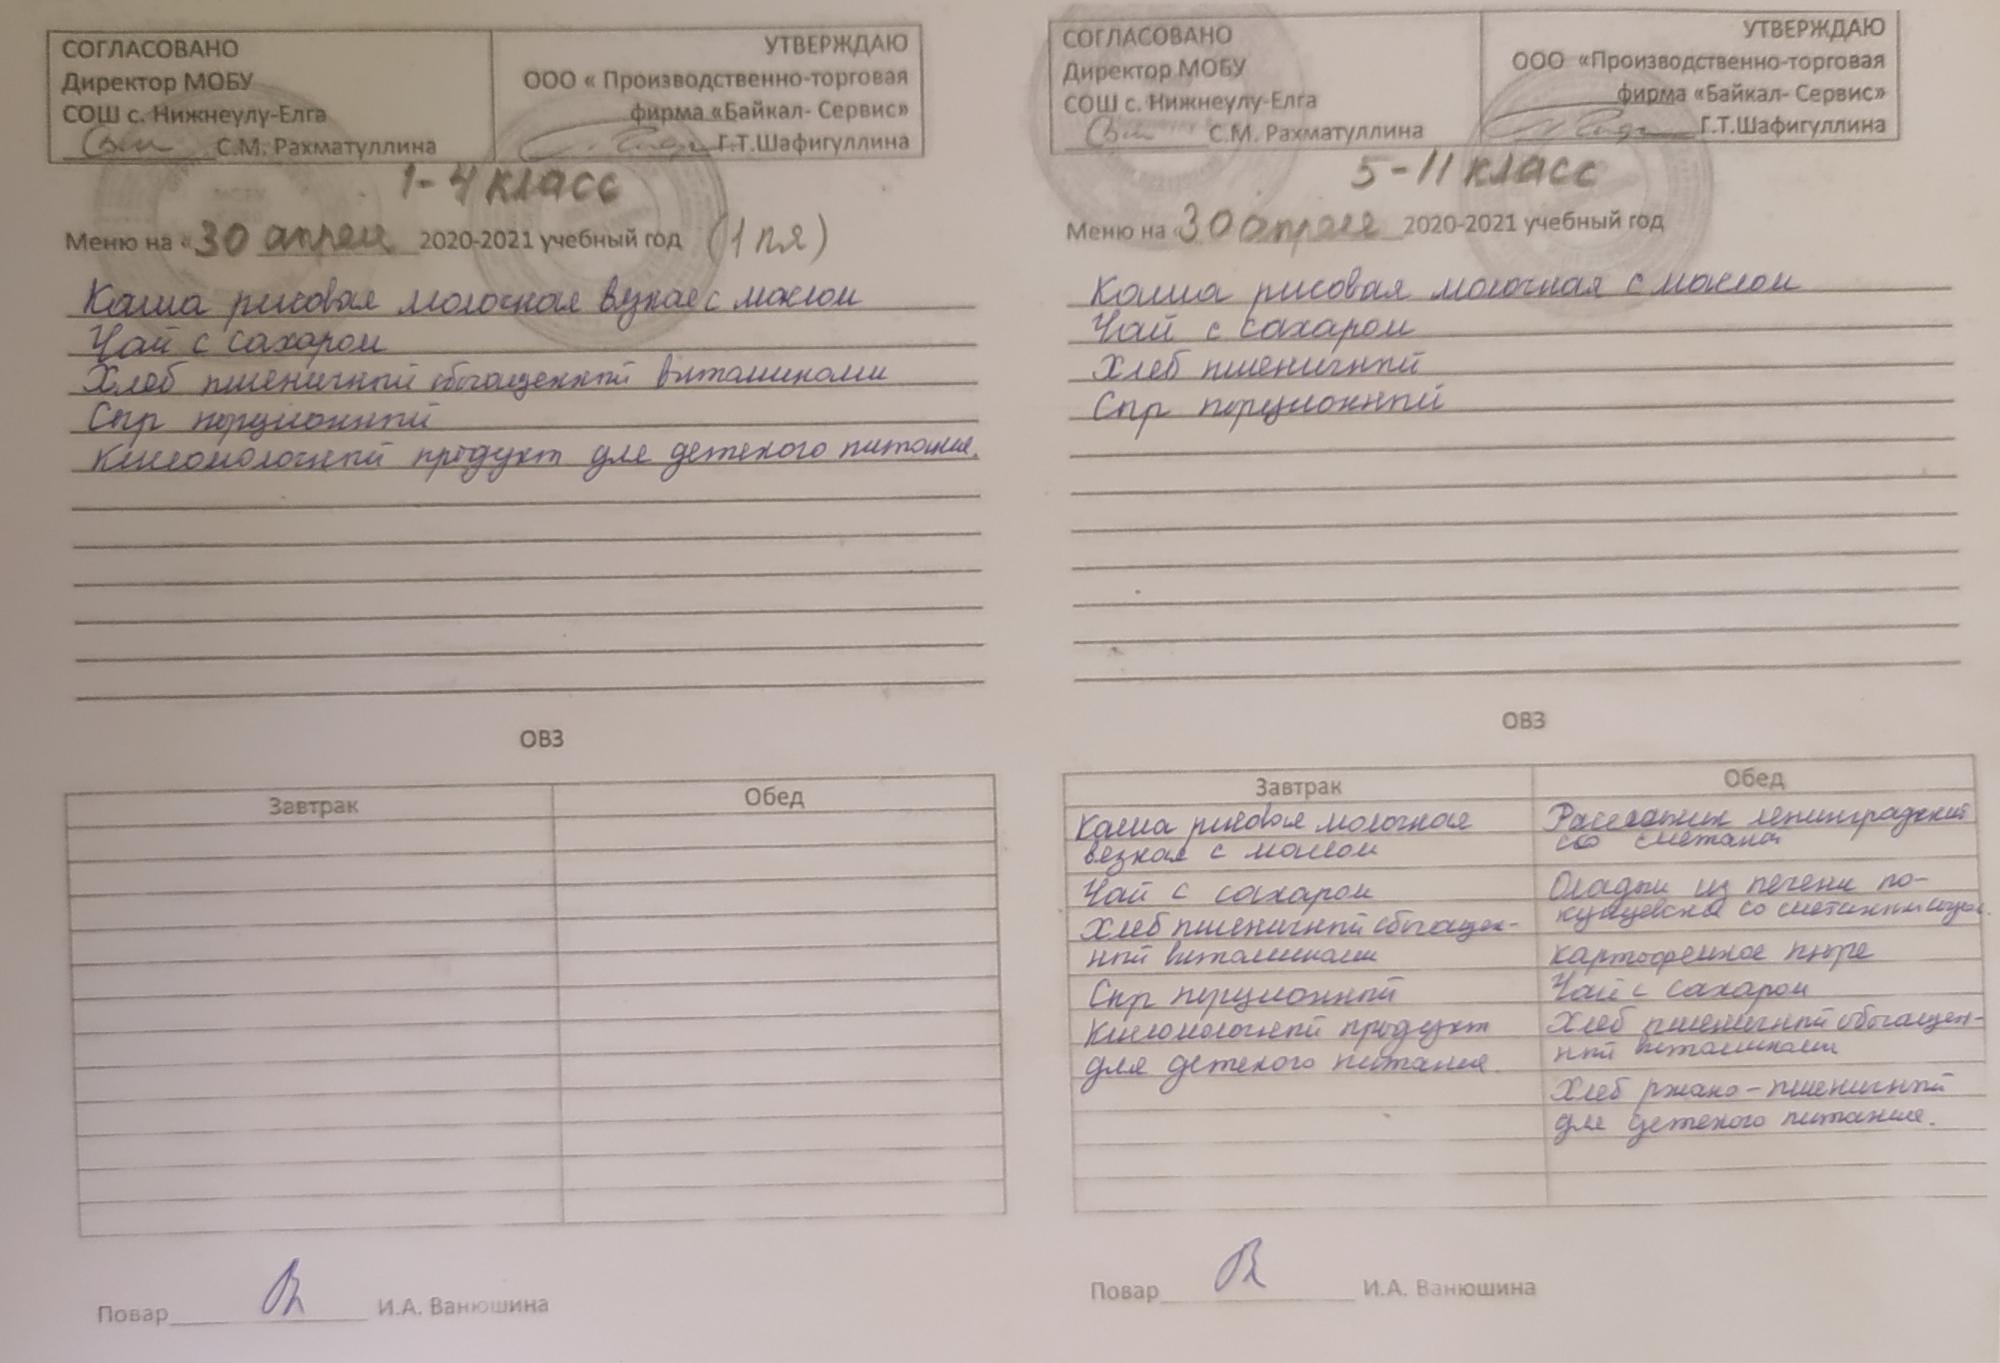 СОГЛАСОВАНО
Директор МОБУ
СОШ с. Нижнеулу-Елга
С.М. Рахматуллина
УТВЕРЖДАЮ
ООО « Производственно-торговая
фирма «Байкал- Сервис»
Г.Т.Шафигуллина
1-4 класс
Меню на «30 апреля 2020-2021 учебный год (1 пя)
Каша рисовая молочная вязкая с маслом
Чай с сахаром
Хлеб пшеничный обогащенный витаминами
Сыр порционный
Кисломолочный продукт для детского питания.
ОВЗ
Завтрак
Обед
Повар И.А. Ванюшина
СОГЛАСОВАНО
Директор МОБУ
СОШ с. Нижнеулу-Елга
С.М. Рахматуллина
УТВЕРЖДАЮ
ООО «Производственно-торговая
фирма «Байкал- Сервис»
Г.Т.Шафигуллина
5-11 класс
Меню на «30 апреля 2020-2021 учебный год
Каша рисовая молочная с маслом
Чай с сахаром
Хлеб пшеничный
Сыр порционный
ОВЗ
Завтрак
Каша рисовая молочная
вязкая с маслом
Чай с сахаром
Хлеб пшеничный обогащен-
ный витаминами
Сыр порционный
Кисломолочный продукт
для детского питания.
Обед
Рассольник ленинградский
со сметаной
Оладьи из печени по-
кунцевски со сметанным
картофельное пюре
Чай с сахаром
Хлеб пшеничный обогащен-
ный витаминами
Хлеб ржано-пшеничный
для детского питания.
Повар И.А. Ванюшина